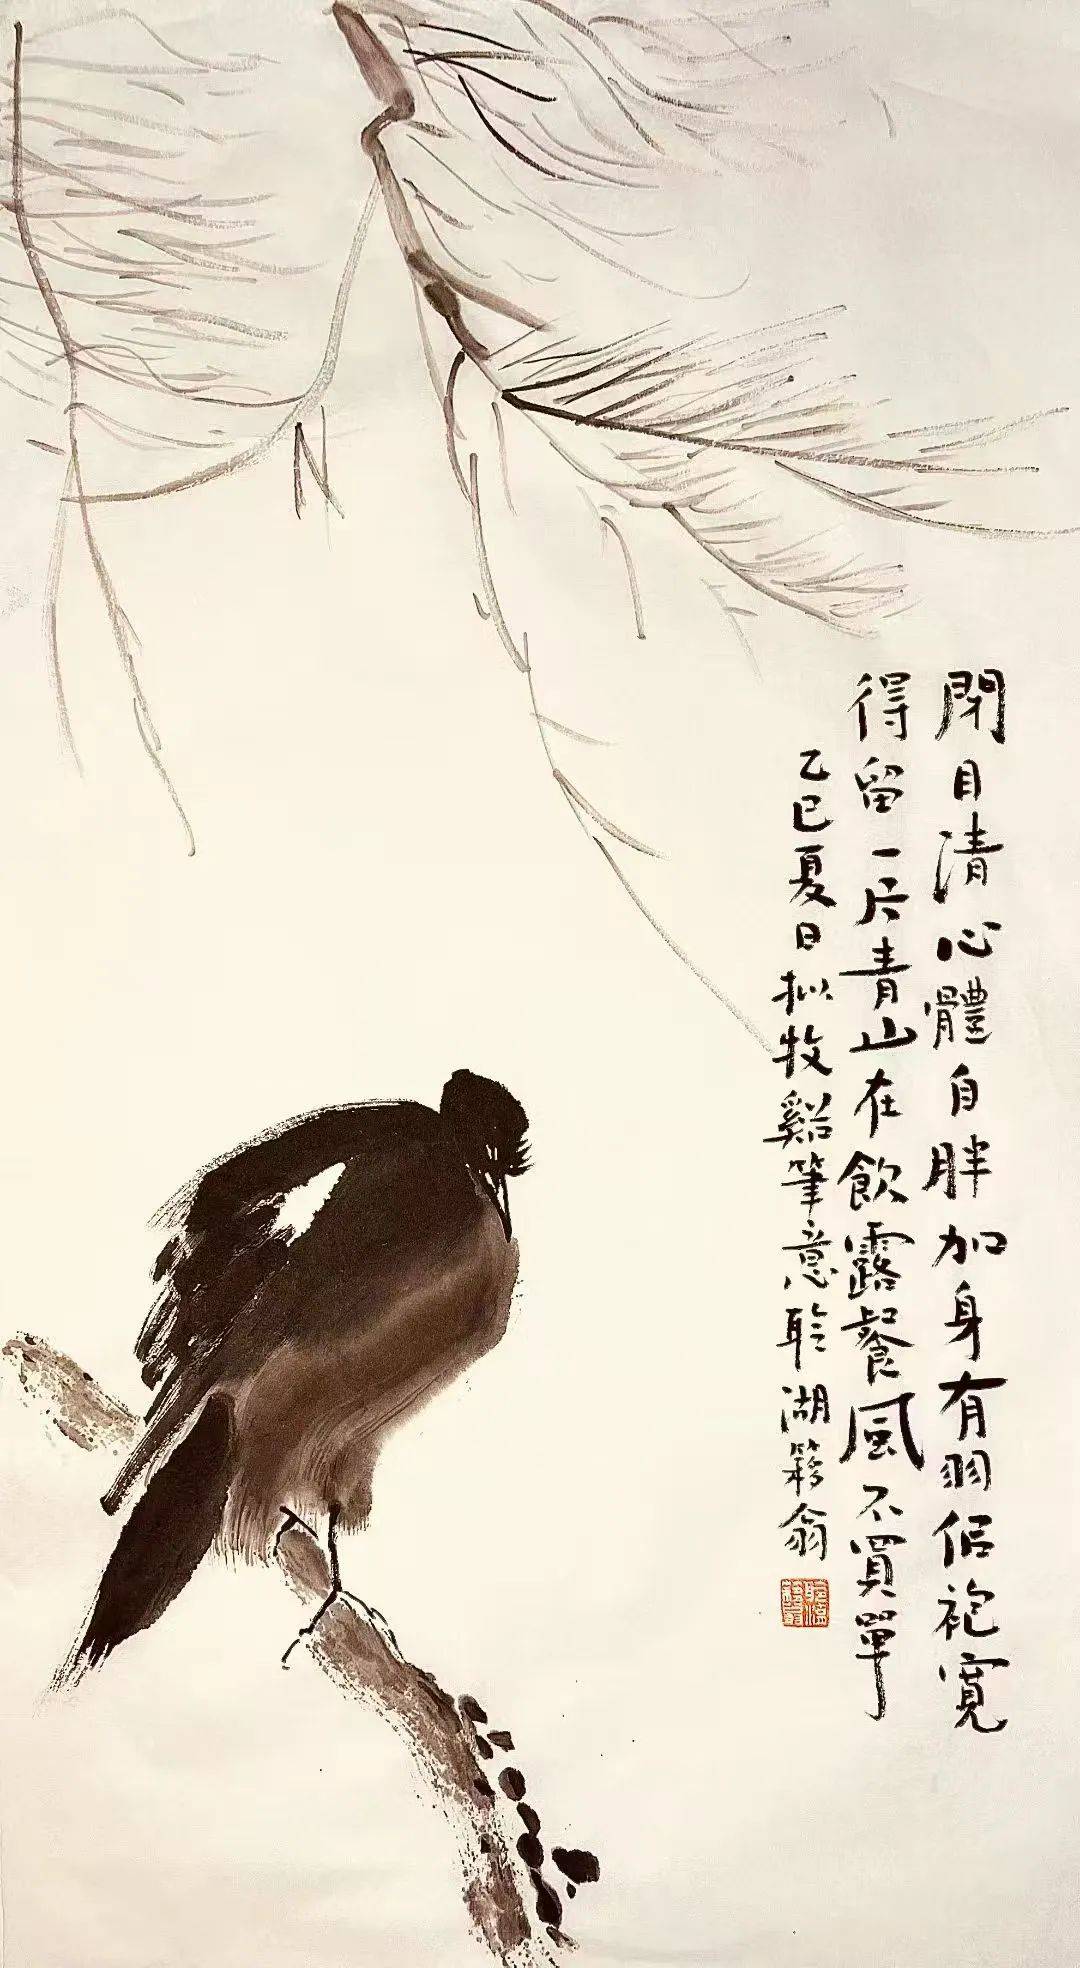 閉目清心體自胖加身有羽侣袍寬
得留一片青山在飲露餐風不買單
乙巳夏日拟牧谿筆意聆湖簃翁